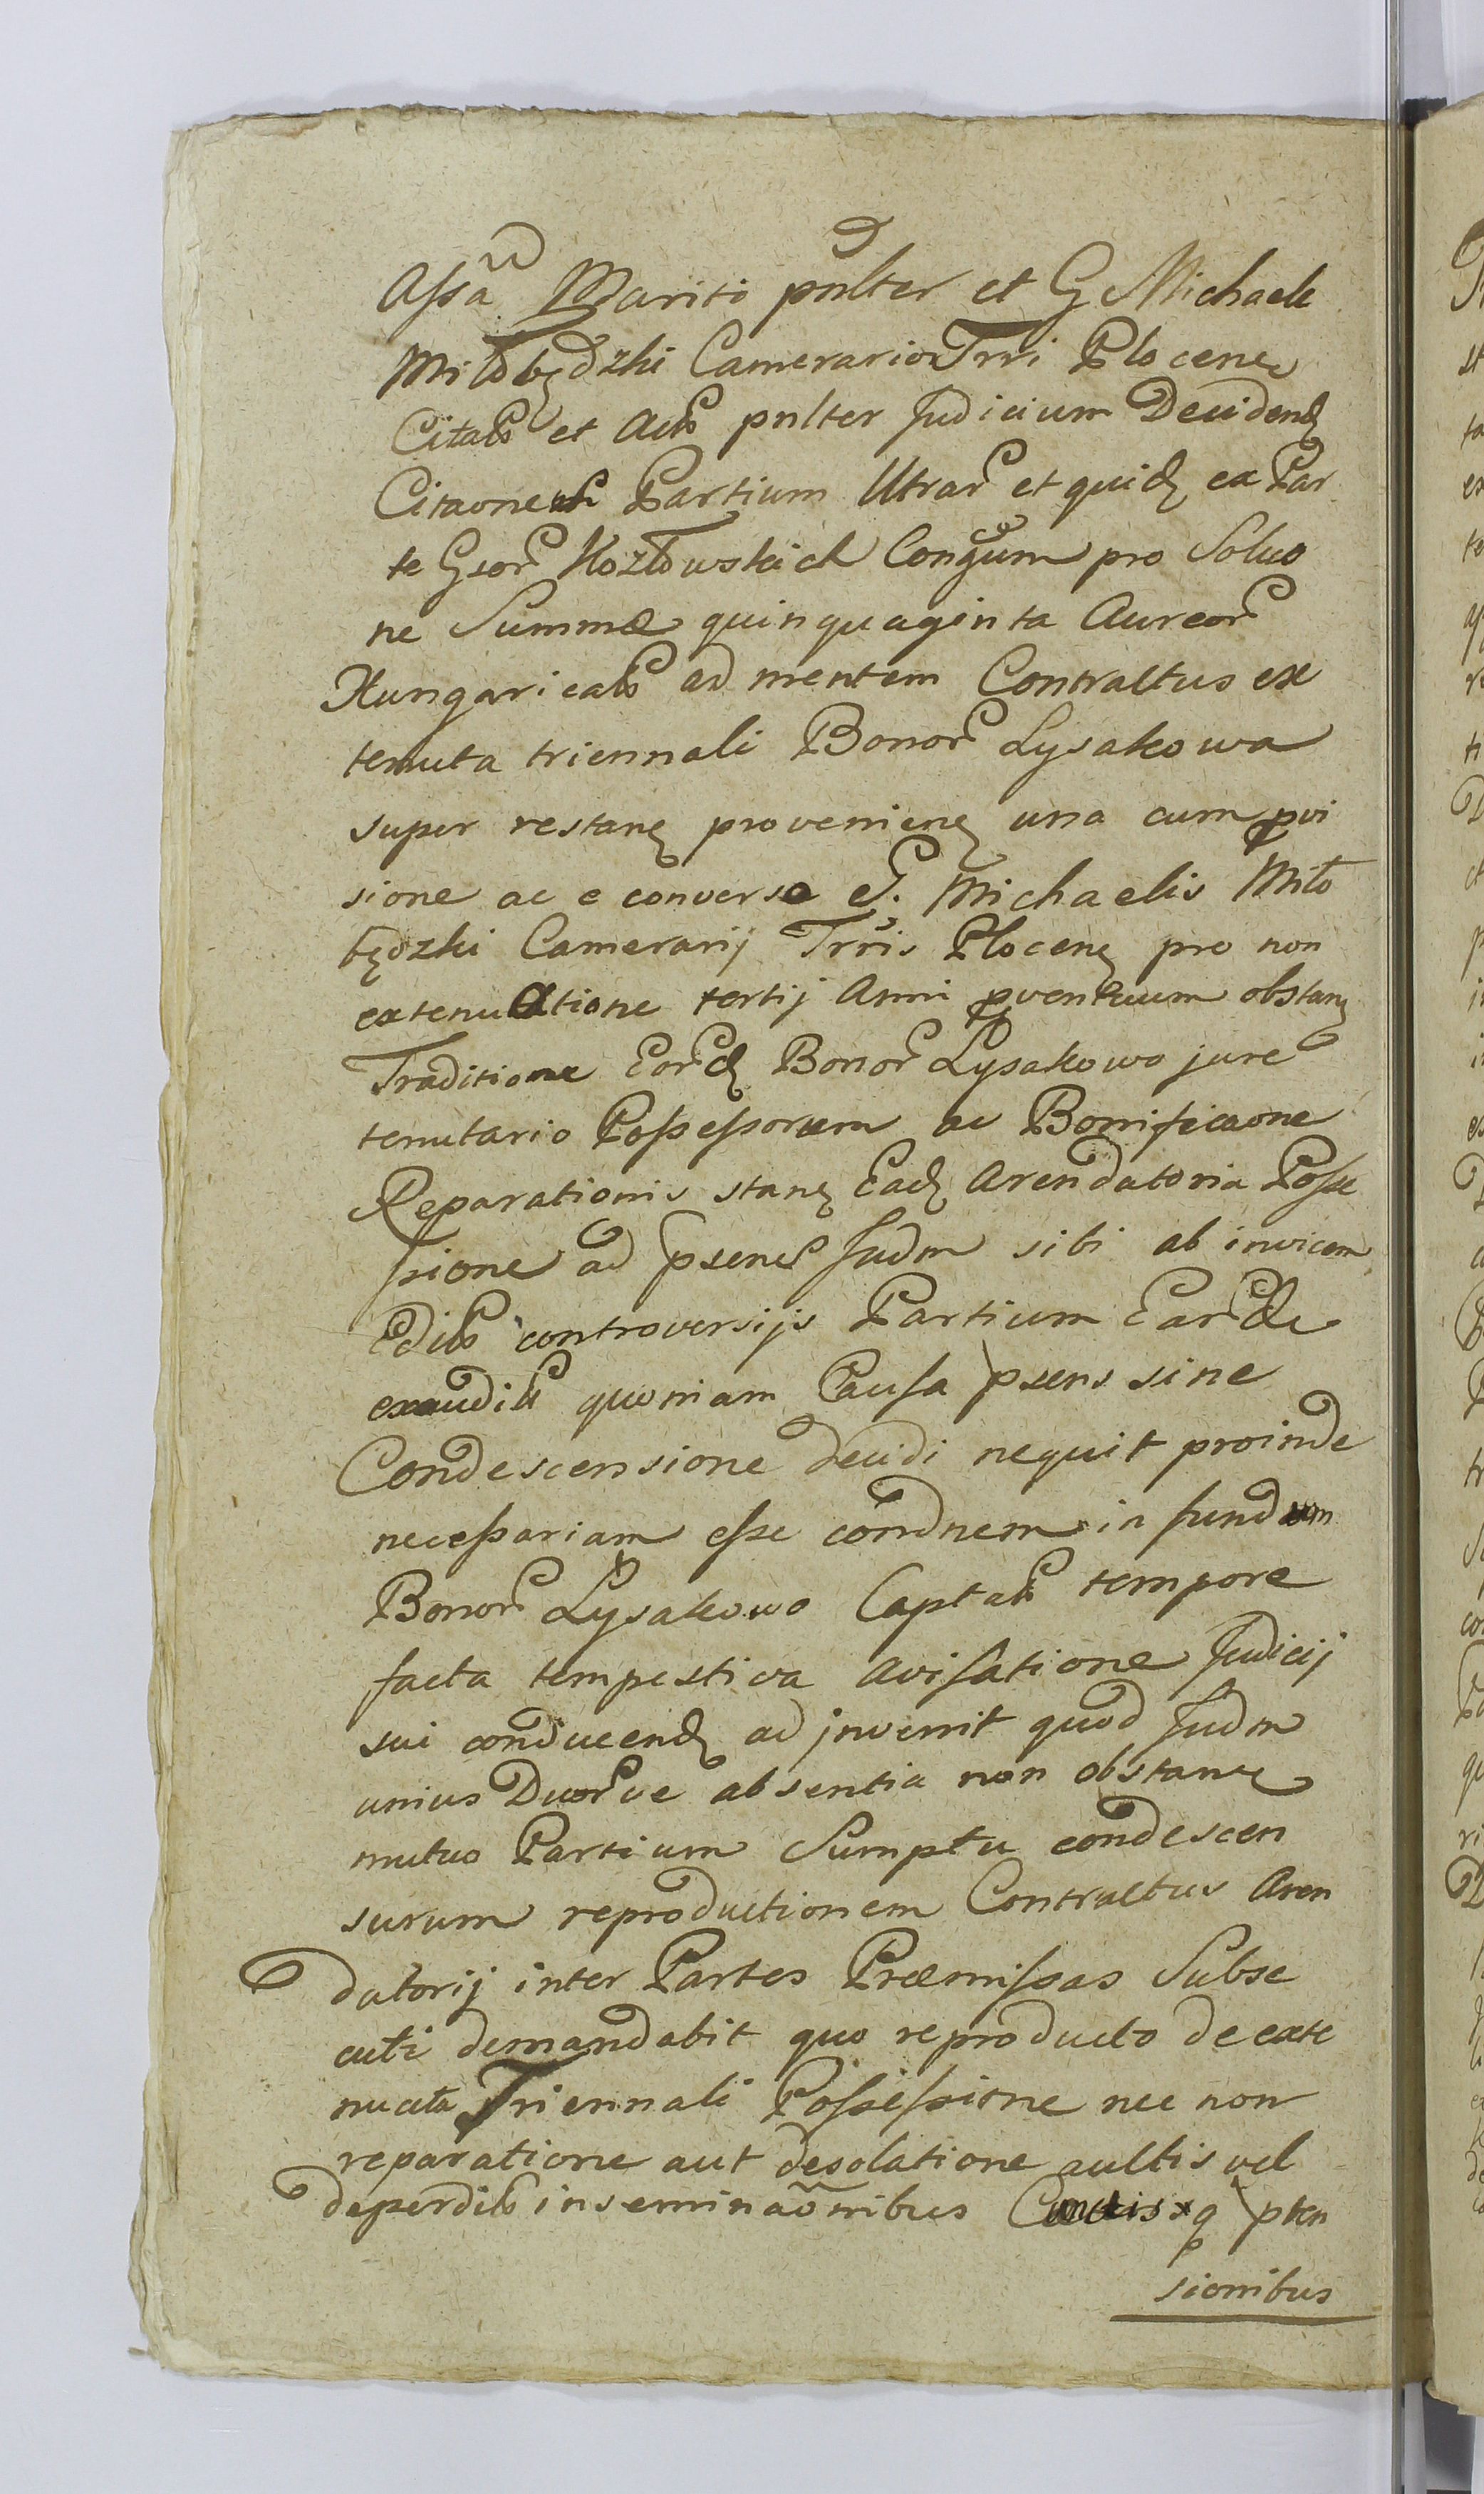 Assã Marito pnlter et G Michaele
Miłobędzki Camerario Trri Plocenę
Citatis et Actis pnlter Judicium Decidendę
Citaonem Partium Utrar et quidę ex Par
te Gsor Kozłowskich Congum pro Soluo
ne Summæ quinquaginta Aureor
Hungaricalis ad mentem Contractus ex
tenuta triennali Bonor Lysakowa
super restanę provenienę una cum pvi
sione ac e converso G. Michaelis Miło
będzki Camerarij Trris Plocenę pro non
extenuatione tertij Anni pventuum obstanę
Traditione Eordę Bonor Lysakowo jure
tenutario Possessorum ac Bonificaone
Reparationis stanę Eadę Arendatoria Posse
ssione ad psens Judm sibi ab invicem
Editis controversijs Partium Earde
exauditis quoniam Causa psens sine
Condescensione decidi nequit proinde
necessariam esse condnem in fundum
Bonor Lysakowo Captatis tempore
facta tempestiva avisatione Judicij
sui conducendę adjnvenit quod Judm
unius Duorve absentia non obstanę
mutuo Partium Sumptu condescen
surum reproductionem Contractus Aren
datorij inter Partes Præmissas Subse
cuti demandabit quo reproducto de exte
nuata Triennali Possessione nec non
reparatione aut desolatione aultis vel
deperditis inseminaõnibus Cunctisq pten
sionibus